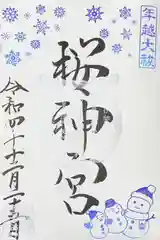 年越大祓
桜神宮
令和四年十二月二十五日